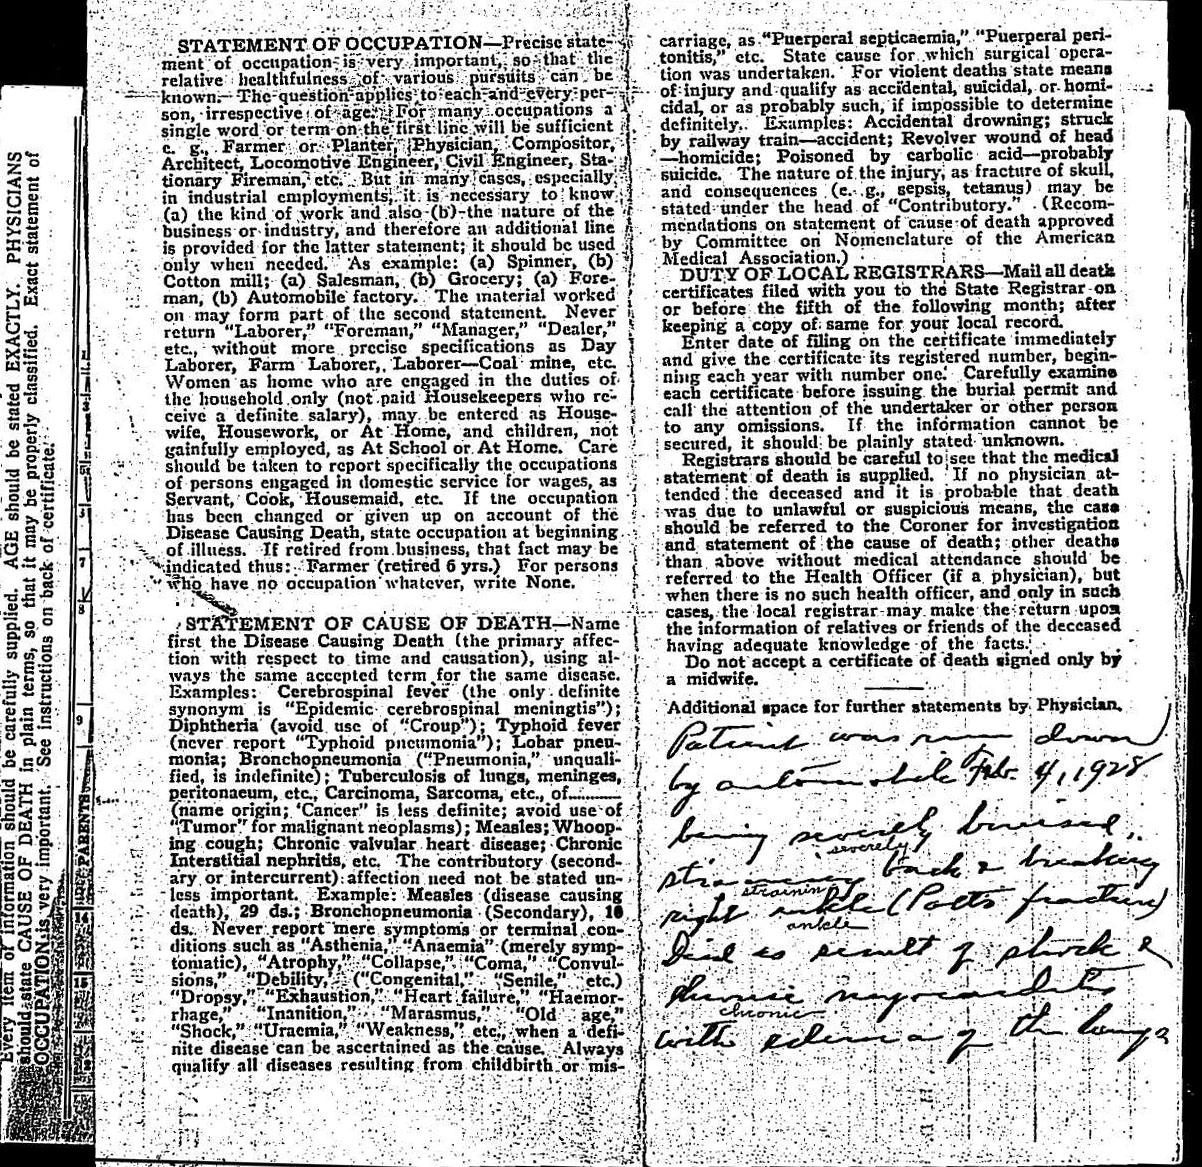 Every item of information should be carefully supplied. AGE should be stated EXACTLY. PHYSICIANS
should state CAUSE OF DEATH in plain terms, so that it may be properly classified. Exact statement of
OCCUPATION is very important. See instructions on back of certificate.
PARENTS
7
8
9
14
15
STATEMENT OF OCCUPATION—Precise state-
ment of occupation is very important, so that the
relative healthfulness of various pursuits can be
known. The question applies to each and every per-
son, irrespective of age. For many occupations a
single word or term on the first line will be sufficient
e. g., Farmer or Planter, Physician, Compositor,
Architect, Locomotive Engineer, Civil Engineer, Sta-
tionary Fireman, etc. But in many cases, especially
in industrial employments, it is necessary to know
(a) the kind of work and also (b) the nature of the
business or industry, and therefore an additional line
is provided for the latter statement; it should be used
only when needed. As example: (a) Spinner, (b)
Cotton mill; (a) Salesman, (b) Grocery; (a) Fore-
man, (b) Automobile factory. The material worked
on may form part of the second statement. Never
return "Laborer," "Foreman," "Manager," "Dealer,"
etc., without more precise specifications as Day
Laborer, Farm Laborer, Laborer—Coal mine, etc.
Women as home who are engaged in the duties of
the household only (not paid Housekeepers who re-
ceive a definite salary), may be entered as House-
wife, Housework, or At Home, and children, not
gainfully employed, as At School or At Home. Care
should be taken to report specifically the occupations
of persons engaged in domestic service for wages, as
Servant, Cook, Housemaid, etc. If the occupation
has been changed or given up on account of the
Disease Causing Death, state occupation at beginning
of illness. If retired from business, that fact may be
indicated thus: Farmer (retired 6 yrs.) For persons
who have no occupation whatever, write None.
STATEMENT OF CAUSE OF DEATH—Name
first the Disease Causing Death (the primary affec-
tion with respect to time and causation), using al-
ways the same accepted term for the same disease.
Examples: Cerebrospinal fever (the only definite
synonym is "Epidemic cerebrospinal meningtis");
Diphtheria (avoid use of "Croup"); Typhoid fever
(never report "Typhoid pneumonia"); Lobar pneu-
monia; Bronchopneumonia ("Pneumonia," unquali-
fied, is indefinite); Tuberculosis of lungs, meninges,
peritonaeum, etc., Carcinoma, Sarcoma, etc., of..........
(name origin; 'Cancer" is less definite; avoid use of
"Tumor" for malignant neoplasms); Measles; Whoop-
ing cough; Chronic valvular heart disease; Chronic
Interstitial nephritis, etc. The contributory (second-
ary or intercurrent) affection need not be stated un-
less important. Example: Measles (disease causing
death), 29 ds.; Bronchopneumonia (Secondary), 10
ds. Never report mere symptoms or terminal con-
ditions such as "Asthenia," "Anaemia" (merely symp-
tomatic), "Atrophy," "Collapse," "Coma," "Convul-
sions," "Debility," ("Congenital," "Senile," etc.)
"Dropsy," "Exhaustion," "Heart failure," "Haemor-
rhage," "Inanition," "Marasmus," "Old age,"
"Shock," "Uraemia," "Weakness," etc., when a defi-
nite disease can be ascertained as the cause. Always
qualify all diseases resulting from childbirth or mis-
carriage, as "Puerperal septicaemia," "Puerperal peri-
tonitis," etc. State cause for which surgical opera-
tion was undertaken. For violent deaths state means
of injury and qualify as accidental, suicidal, or homi-
cidal, or as probably such, if impossible to determine
definitely. Examples: Accidental drowning; struck
by railway train—accident; Revolver wound of head
—homicide; Poisoned by carbolic acid—probably
suicide. The nature of the injury, as fracture of skull,
and consequences (e. g., sepsis, tetanus) may be
stated under the head of "Contributory." (Recom-
mendations on statement of cause of death approved
by Committee on Nomenclature of the American
Medical Association.)
DUTY OF LOCAL REGISTRARS—Mail all death
certificates filed with you to the State Registrar on
or before the fifth of the following month; after
keeping a copy of same for your local record.
Enter date of filing on the certificate immediately
and give the certificate its registered number, begin-
ning each year with number one. Carefully examine
each certificate before issuing the burial permit and
call the attention of the undertaker or other person
to any omissions. If the information cannot be
secured, it should be plainly stated unknown.
Registrars should be careful to see that the medical
statement of death is supplied. If no physician at-
tended the deceased and it is probable that death
was due to unlawful or suspicious means, the case
should be referred to the Coroner for investigation
and statement of the cause of death; other deaths
than above without medical attendance should be
referred to the Health Officer (if a physician), but
when there is no such health officer, and only in such
cases, the local registrar may make the return upon
the information of relatives or friends of the deceased
having adequate knowledge of the facts.
Do not accept a certificate of death signed only by
a midwife.
Additional space for further statements by Physician.
Patient was run down
by automobile Feb. 4, 1928
being severely bruised,
severely
straining back & breaking
straining
right ankle (Potts fracture)
ankle
Died as result of shock &
chronic myocarditis
chronic
with edema of the lungs